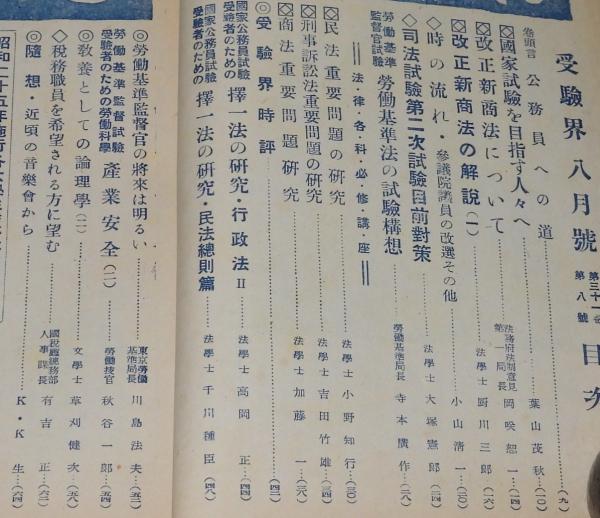 受驗界 八月號 第三十一卷 第八號 目次
卷頭言 公務員への道……(九)
◇國家試驗を目指す人々へ……葉山茂秋…(一〇)
◇改正新商法について……法務府法制意見第一局長 岡咲恕一…(一四)
◇改正新商法の解說(一)……法學士 厨川三郎…(一六)
◇時の流れ・參議院議員の改選その他……小山淸一…(二〇)
◇司法試驗第二次試驗目前對策……法學士 大塚憲郎…(二四)
勞働基準監督官試驗 勞働基準法の試驗構想……勞働基準局長 寺本廣作…(二八)
法・律・各・科・必・修・講・座
◇民法重要問題の硏究……法學士 小野知行…(三〇)
◇刑事訴訟法重要問題の硏究……法學士 吉田竹雄…(三四)
◇商法重要問題硏究……法學士 加藤一…(三八)
◎受驗界時評……(四二)
國家公務員試驗受驗者のための 擇一法の硏究・行政法Ⅱ……法學士 高岡正…(四四)
國家公務員試驗受驗者のための 擇一法の硏究・民法總則篇……法學士 千川種臣…(四八)
◎勞働基準監督官の將來は明るい……東京勞働基準局長 川島法夫…(五二)
勞働基準監督試驗受驗者のための勞働科學 產業安全(二)……勞働技官 秋谷一郎…(五四)
◎敎養としての論理學(二)……文學士 草刈健次…(五八)
◇稅務職員を希望される方に望む……國稅廳總務部人事課長 有吉正…(六二)
◎隨想・近頃の音樂會から……K・K生…(六四)
昭和二十五年施行